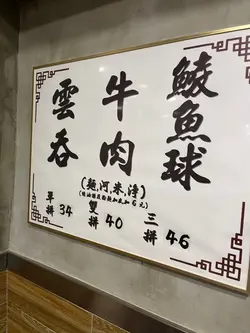 鯪魚球
牛肉
雲吞
(麵,河,米,淨)
單拼34
雙拼40
三拼46